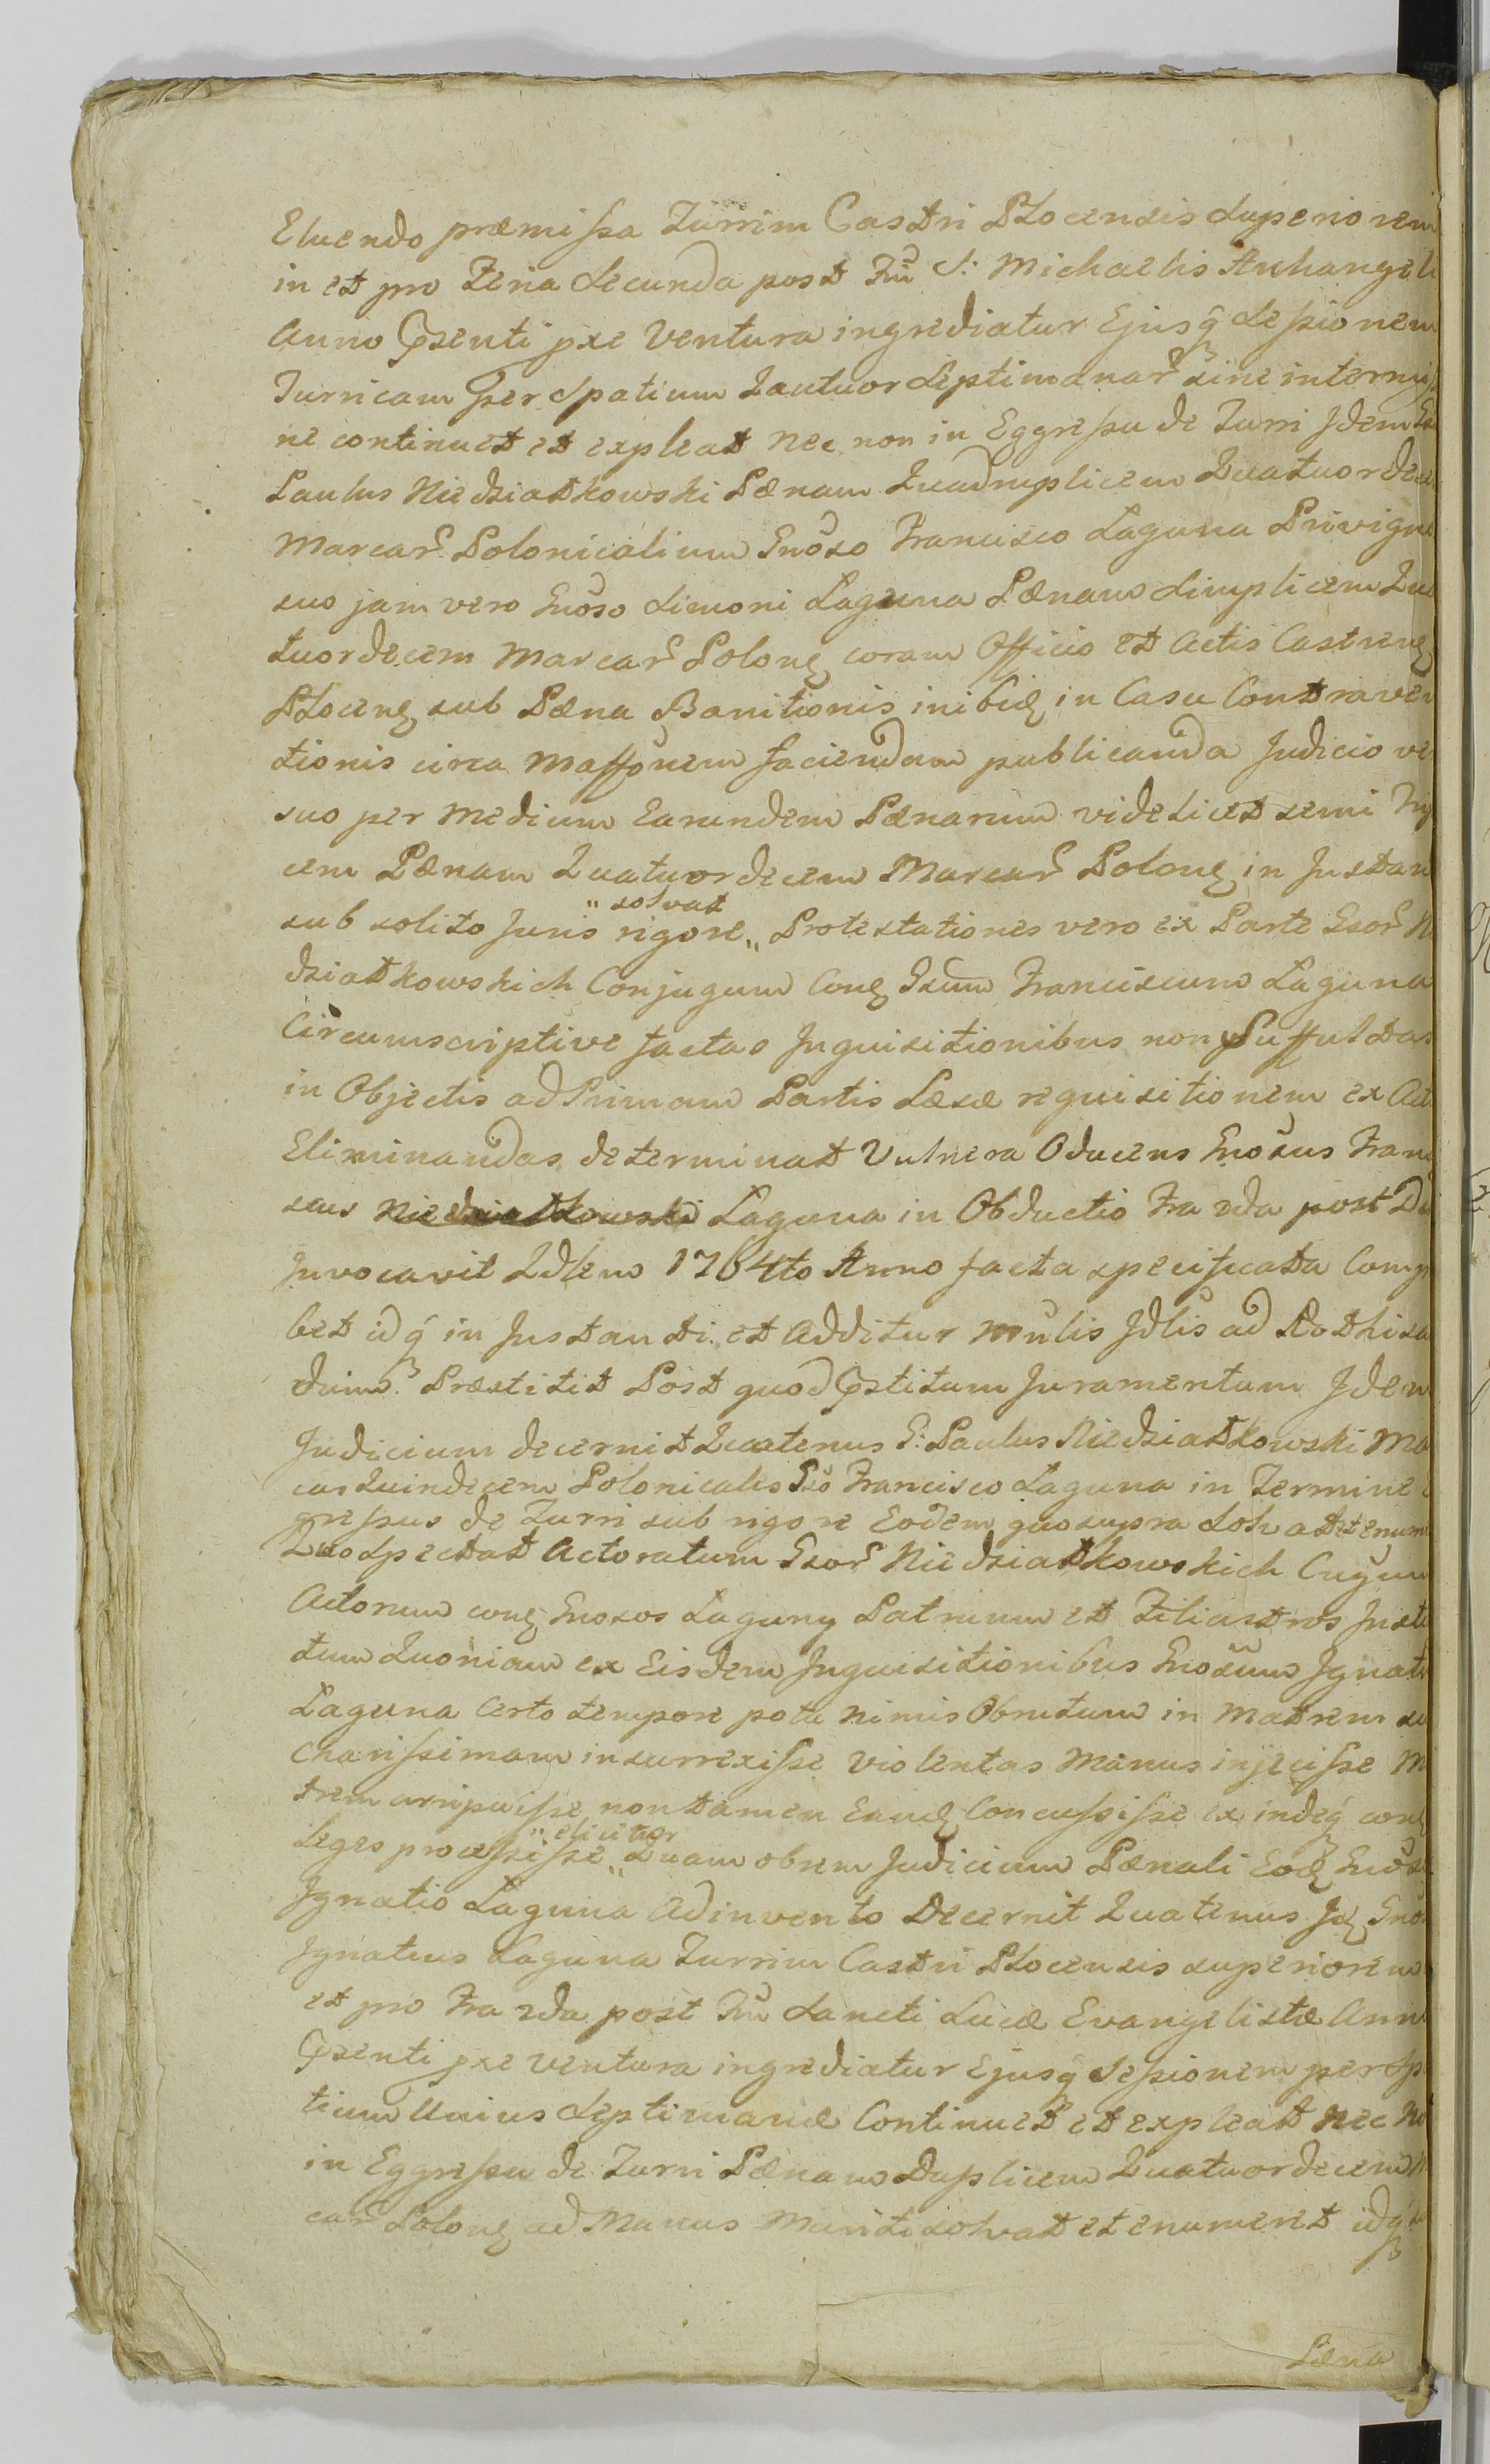 Eluendo præmissa Turrim Castri Plocensis superiorem
in et pro Feria Secunda post Fũ S: Michaelis Archangeli
Anno Pñsenti pxe Ventura ingrediatur Ejusq̃ Sessionem
Turricam Per Spatium Qautuor Septimanar̃ sine intermis
ne continuet et expleat nec non in Eggressu de Turri Idem
Paulus Niedziatkowski Pænam Quadruplicem Quatuordecem
Marcar̃ Polonicalium Gnõso Francisco Laguna Privigno
suo jam vero Gnõso Simoni Laguna Pænam Simplicem Qua
tuordecem Marcar̃ Polonę coram Officio et Actis Castrenę
Plocenę sub Pæna Banitionis inibię in Casu Contraven
tionis circa Maffõnem faciendam publicanda Judicio ve
suo per Medium Earundem Pænarum videlicet semi
cem Pænam Quatuordecem Marcar̃ Polonę in Instan
„ solvat
sub solito Juris rigore „ Protestationes vero ex Parte Gsor̃ Ni
dziatkowskich Conjugum Conę Gsum Franciscum Laguna
Circumscriptive factas Inquisitionibus non Suffultas
in Objectis ad Primam Partis Læsæ requisitionem ex Act
Eliminandas determinat Vulnera Oducens Gnõsus Fran
scus Niedziatkowski Laguna in Obductio Fra 2da post
Invocavit Qdlem 1764to Anno facta specificata Comp
bet idq̃ in Instanti et Additur Mũlis Jdlis ad Rothisa
dum Præstitit Post quod Pñstitum Juramentum Idem
Judicium decernit Quatenus G: Paulus Niedziatkowski Ma
cas Quindecem Polonicales Gsõ Francisco Laguna in Termine
gressus de Turri sub rigore Eodem quo supra Solvat et enume
Quo Spectat Actoratum Gsor̃ Niedziatkowskich Cngum
Actorum conę Gnosos Laguny Patruum et Filiastros Insti
tum Quoniam ex Eisdem Inquisitionibus Gnõsum Ignati
Laguna Certo tempore potu nimis Obrutum in Matrem su
Charissimam insurrexisse violentas Manus injecisse M
trem arripuisse non tamen Eandę Concussisse ex indeq̃ conę
„ elicitur
Leges processisse „ Quam obrem Judicium Pænali Eodę Gnõs
Ignatio Laguna Adinvento Decernit Quatenus Idę Gnõs
Ignatius Laguna Turrim Castri Plocensis superiorem
et pro Fra 2da post Fũ Sancti Lucæ Evangelistæ Ann
Pñsenti pxe Ventura ingrediatur Ejusq̃ Sessionem per Spa
tium Unius Septimanæ Continuet et expleat nec No
in Eggressu de Turri Pænam Duplicem Quatuordecem
car̃ Polonę ad Manus Mariti solvat et enumeret idq̃
Pæna